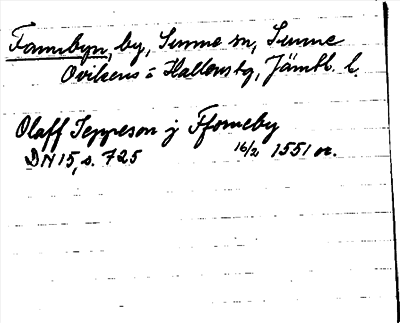 Fannbyn, by, Sunne sn, Sunne
Ovikens o Hallens tg, Jämtl. l.
Olaff Jeppeson j Ffonneby
DN 15, s. 725 16/2 1551 or.